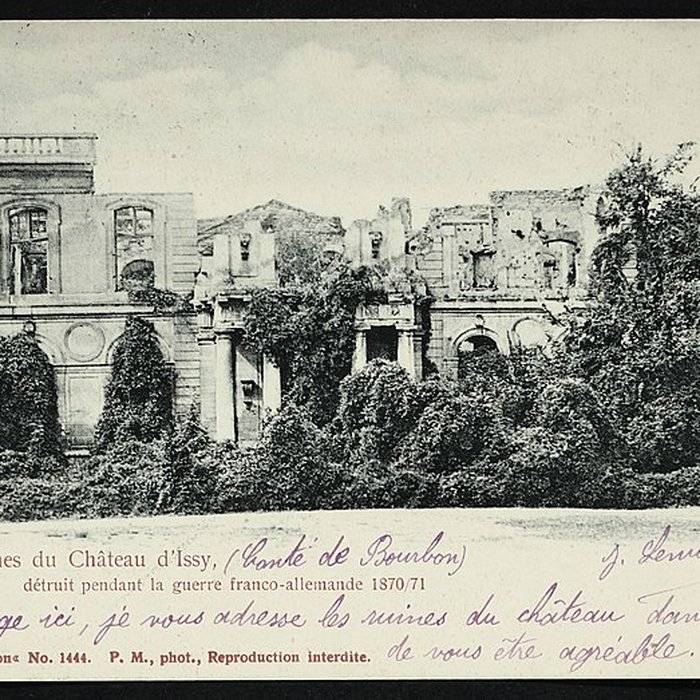 nes du Château d'Issy, (Conté de Bourbon)
J.
détruit pendant la guerre franco-allemande 1870/71
ge ici, je vous adresse les ruines du château dan
on« No. 1444. P. M., phot., Reproduction interdite.
de vous être agréable.